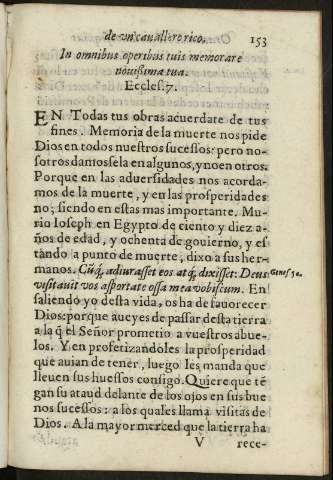 de vn cauallero rico. 153
In omnibus operibus tuis memorare
nouissima tua.
Eccles. 7.
EN Todas tus obras acuerdate de tus
fines. Memoria de la muerte nos pide
Dios en todos nuestros sucessos: pero no-
sotros damossela en algunos, y no en otros.
Porque en las aduersidades nos acorda-
mos de la muerte, y en las prosperidades
no; siendo en estas mas importante. Mu-
rio Ioseph en Egypto de ciento y diez a-
ños de edad, y ochenta de gouierno, y es
tando a punto de muerte, dixo a sus her-
manos. Cũq́, adiurasset eos atq́, dixisset: Deus Genes. 50.
visitauit vos asportate ossa mea vobiscum. En
saliendo yo desta vida, os ha de fauorecer
Dios: porque aueys de passar desta tierra
a la q̃ el Señor prometio a vuestros abue-
los. Y en profetizandoles la prosperidad
que auian de tener, luego les manda que
lleuen sus huessos consigo. Quiere que tẽ
gan su ataud delante de los ojos en sus bue
nos sucessos: a los quales llama visitas de
Dios. A la mayor merced que la tierra ha
V rece-